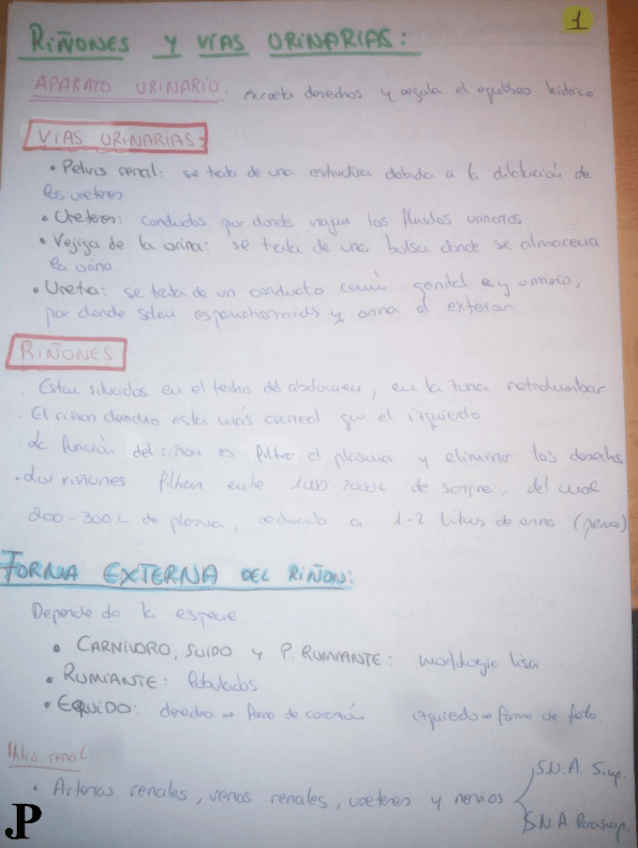 1
RIÑONES Y VÍAS URINARIAS:
APARATO URINARIO: excreta desechos y regula el equilibrio hídrico
VÍAS URINARIAS:
• Pelvis renal: se trata de una estructura debido a la dilatación de
los ureteros
• Ureteros: conductos por donde viajan los fluidos urinarios
• Vejiga de la orina: se trata de una bolsa donde se almacena
la orina.
• Uretra: se trata de un conducto común genital y urinario,
por donde salen espermatozoides y orina al exterior
RIÑONES
Estan situados en el techo del abdomen, en la zona retrolumbar
El riñon derecho esta más craneal que el izquierdo
La función del riñon es filtrar el plasma y eliminar los desechos
• Los riñones filtran entre 1000-2000L de sangre, del cual
200-300L de plasma, reducido a 1-2 litros de orina (perro)
FORMA EXTERNA DEL RIÑON:
Depende de la especie
• CARNIVORO, SUIDO Y P. RUMIANTE: morfologia lisa
• RUMIANTE: lobulados
• EQUIDO: derecho → forma de corazón izquierdo → forma de
Hilio renal:
• Arterias renales, venas renales, ureteres y nervios
S.N.A. Simp.
S.N.A. Parasimp.
JP